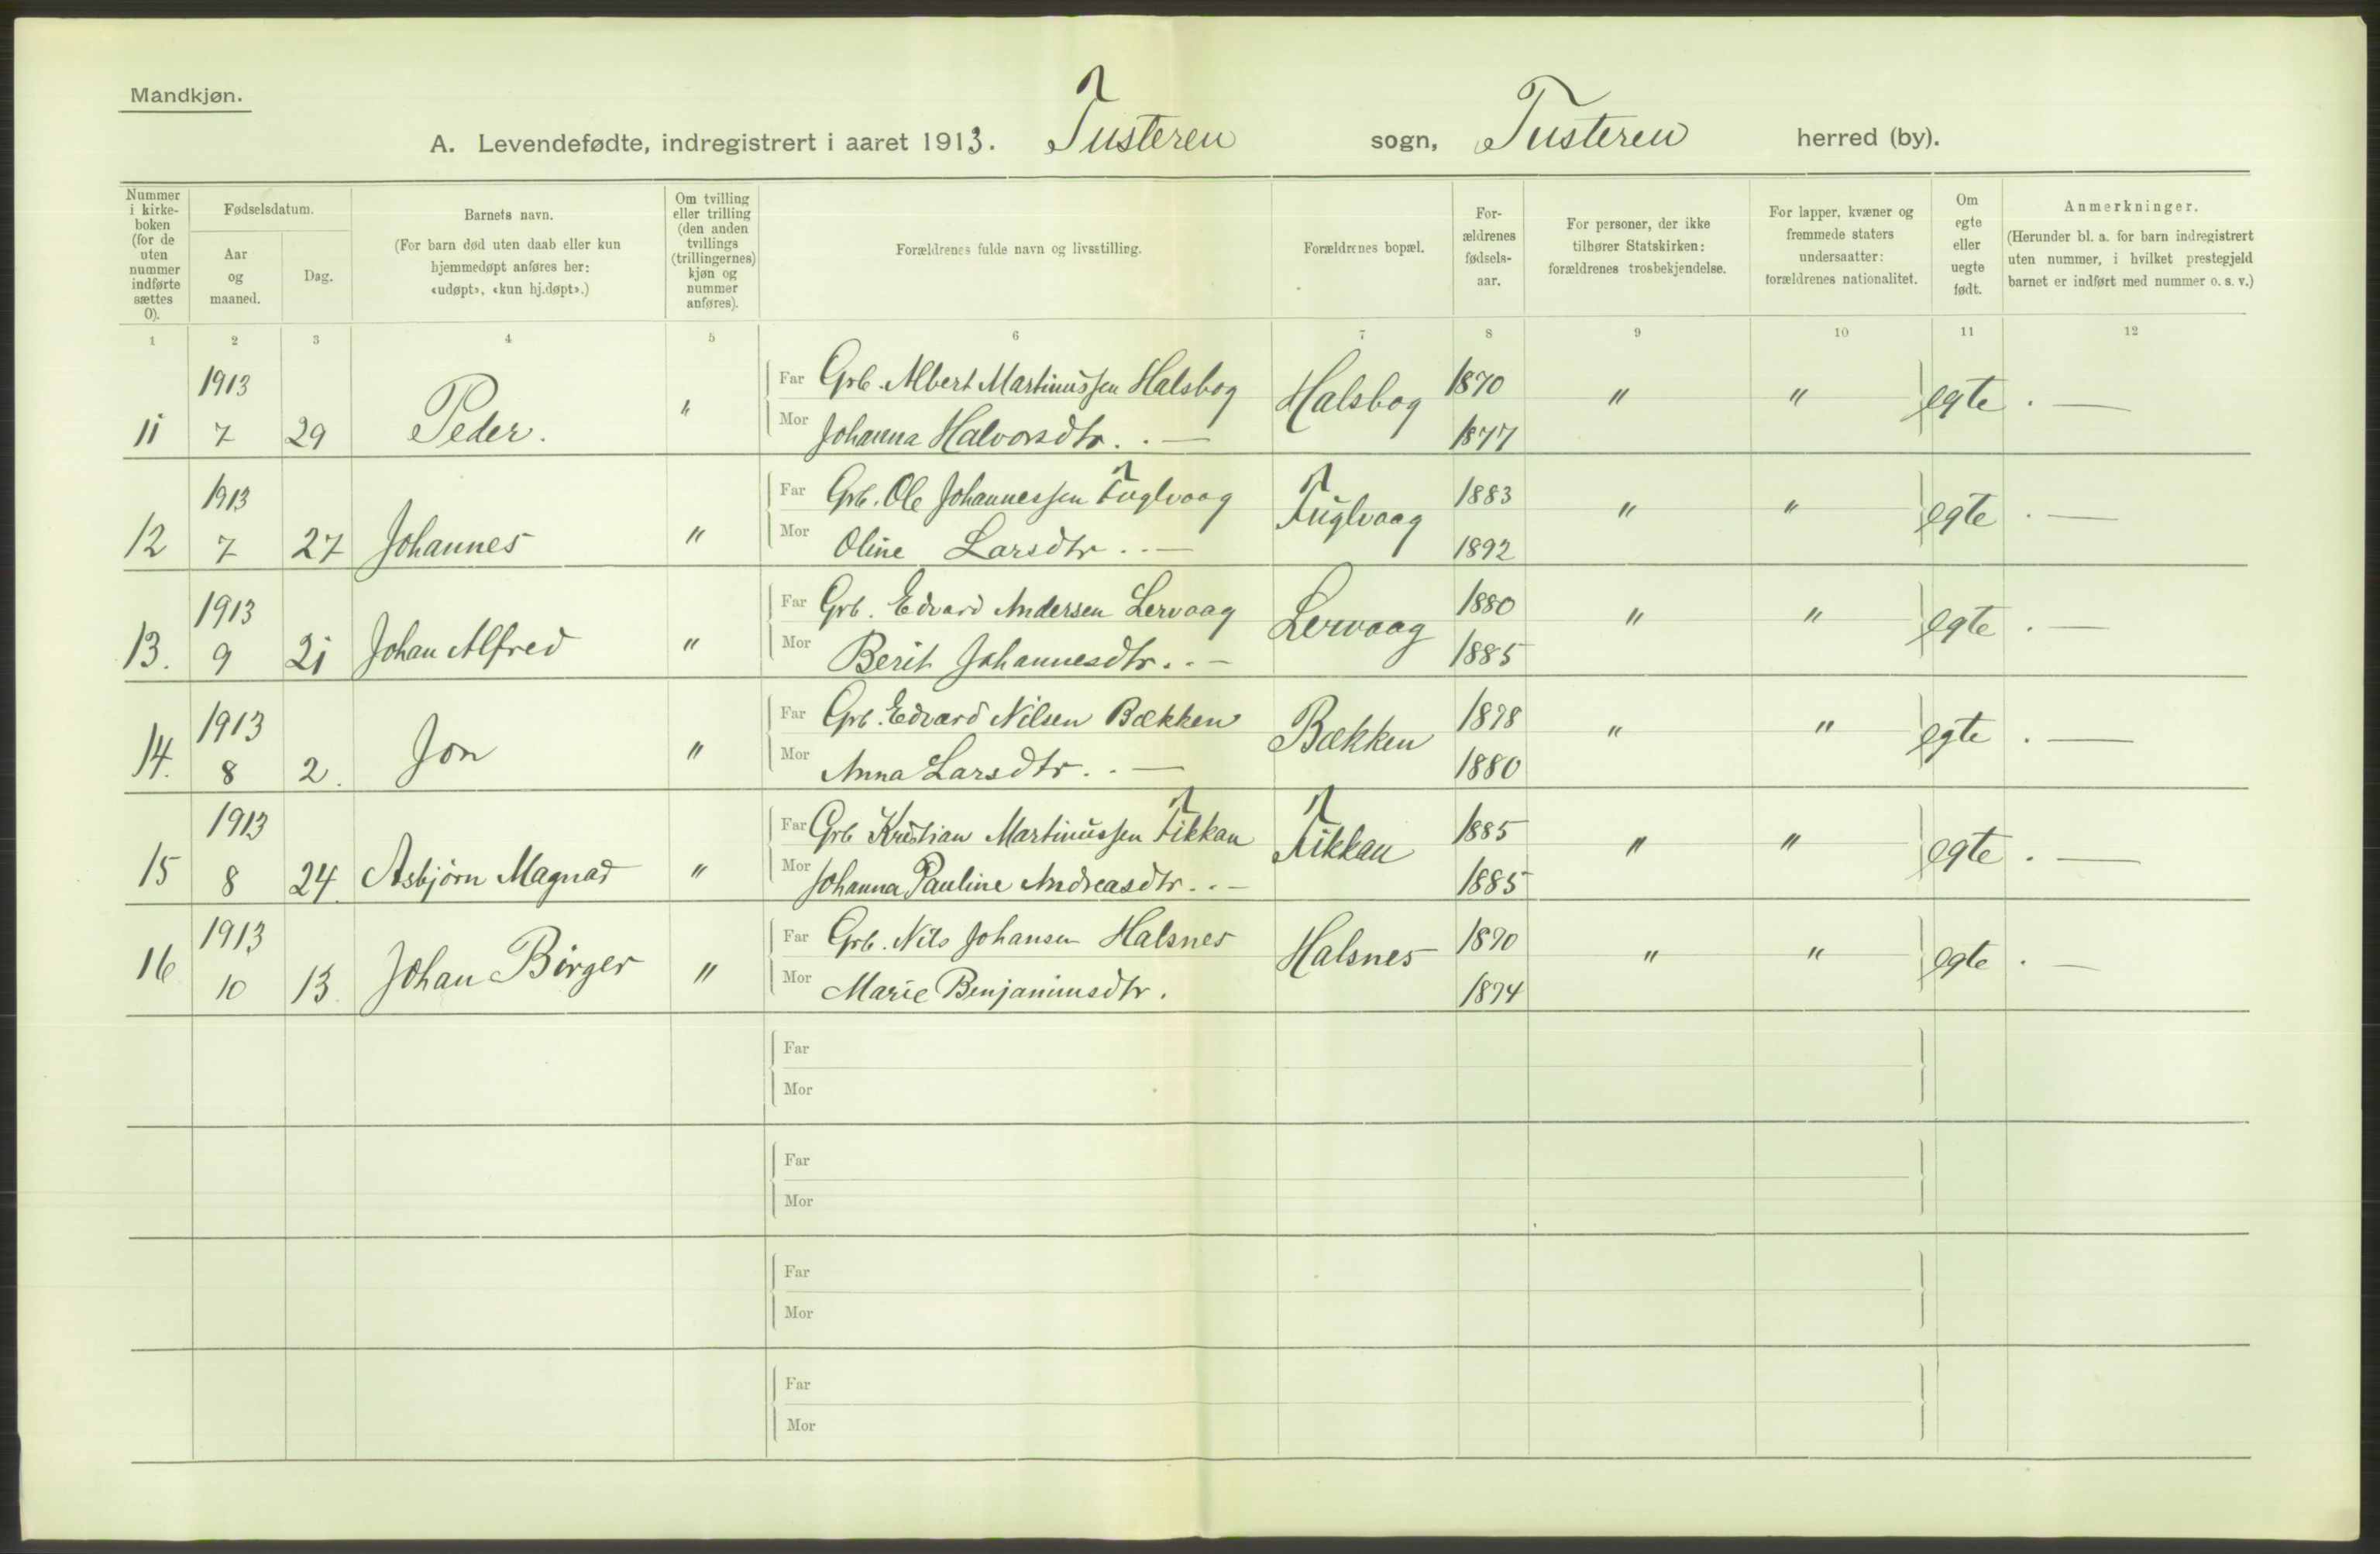 Mandkjøn.
A. Levendefødte, indregistrert i aaret 1913. Tusteren sogn, Tusteren herred (by).
Nummer i kirke-boken (for de uten nummer indførte sættes 0).
Fødselsdatum.
Aar og maaned.
Dag.
Barnets navn.
(For barn død uten daab eller kun hjemmedøpt anføres her: «udøpt», «kun hj.døpt».)
Om tvilling eller trilling (den anden tvillings (trillingernes) kjøn og nummer anføres).
Forældrenes fulde navn og livsstilling.
Forældrenes bopæl.
For-ældrenes fødsels-aar.
For personer, der ikke tilhører Statskirken: forældrenes trosbekjendelse.
For lapper, kvæner og fremmede staters undersaatter: forældrenes nationalitet.
Om egte eller uegte født.
Anmerkninger.
(Herunder bl. a. for barn indregistrert uten nummer, i hvilket prestegjeld barnet er indført med nummer o. s. v.)
1 2 3 4 5 6 7 8 9 10 11 12
11 1913 7 29 Peder. " Far Grb. Albert Martinussen Halsbog Halsbog 1870 " " egte . —
Mor Johanna Halvorsdtr. . — 1877
12 1913 7 27 Johannes " Far Grb. Ole Johannessen Fuglvaag Fuglvaag 1883 " " egte . —
Mor Oline Larsdtr . . — 1892
13. 1913 9 21 Johan Alfred " Far Grb. Edvard Andersen Lervaag Lervaag 1880 " " egte . —
Mor Berit Johannesdtr. . – 1885
14. 1913 8 2. Jon " Far Grb. Edvard Nilsen Bækken Bækken 1878 " " egte . —
Mor Anna Larsdtr. . — 1880
15 1913 8 24. Asbjørn Magnar " Far Grb Kristian Martinussen Fikkan Fikkan 1885 " " egte . —
Mor Johanna Pauline Andreasdtr. . – 1885
16 1913 10 13. Johan Birger " Far Grb. Nils Johansen Halsnes Halsnes 1890 " " egte . —
Mor Marie Benjaminsdtr. 1894
Far
Mor
Far
Mor
Far
Mor
Far
Mor